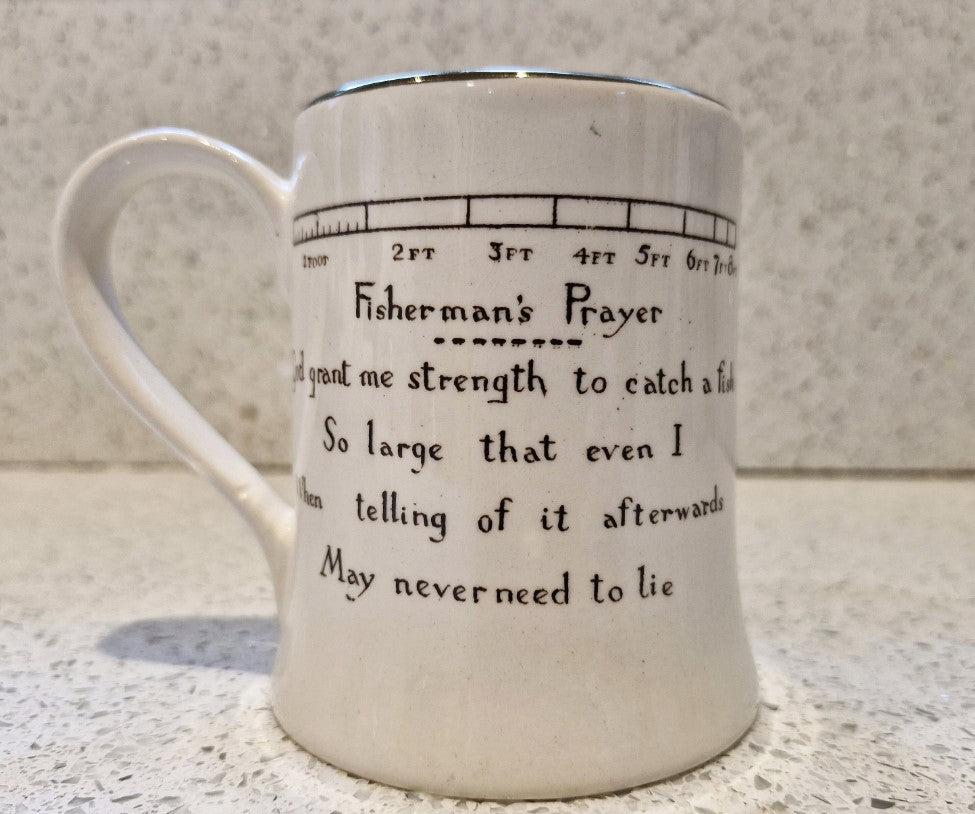 1 FOOT 2 FT 3 FT 4 FT 5 FT 6 FT 7 FT
Fisherman's Prayer
God grant me strength to catch a fish
So large that even I
When telling of it afterwards
May never need to lie